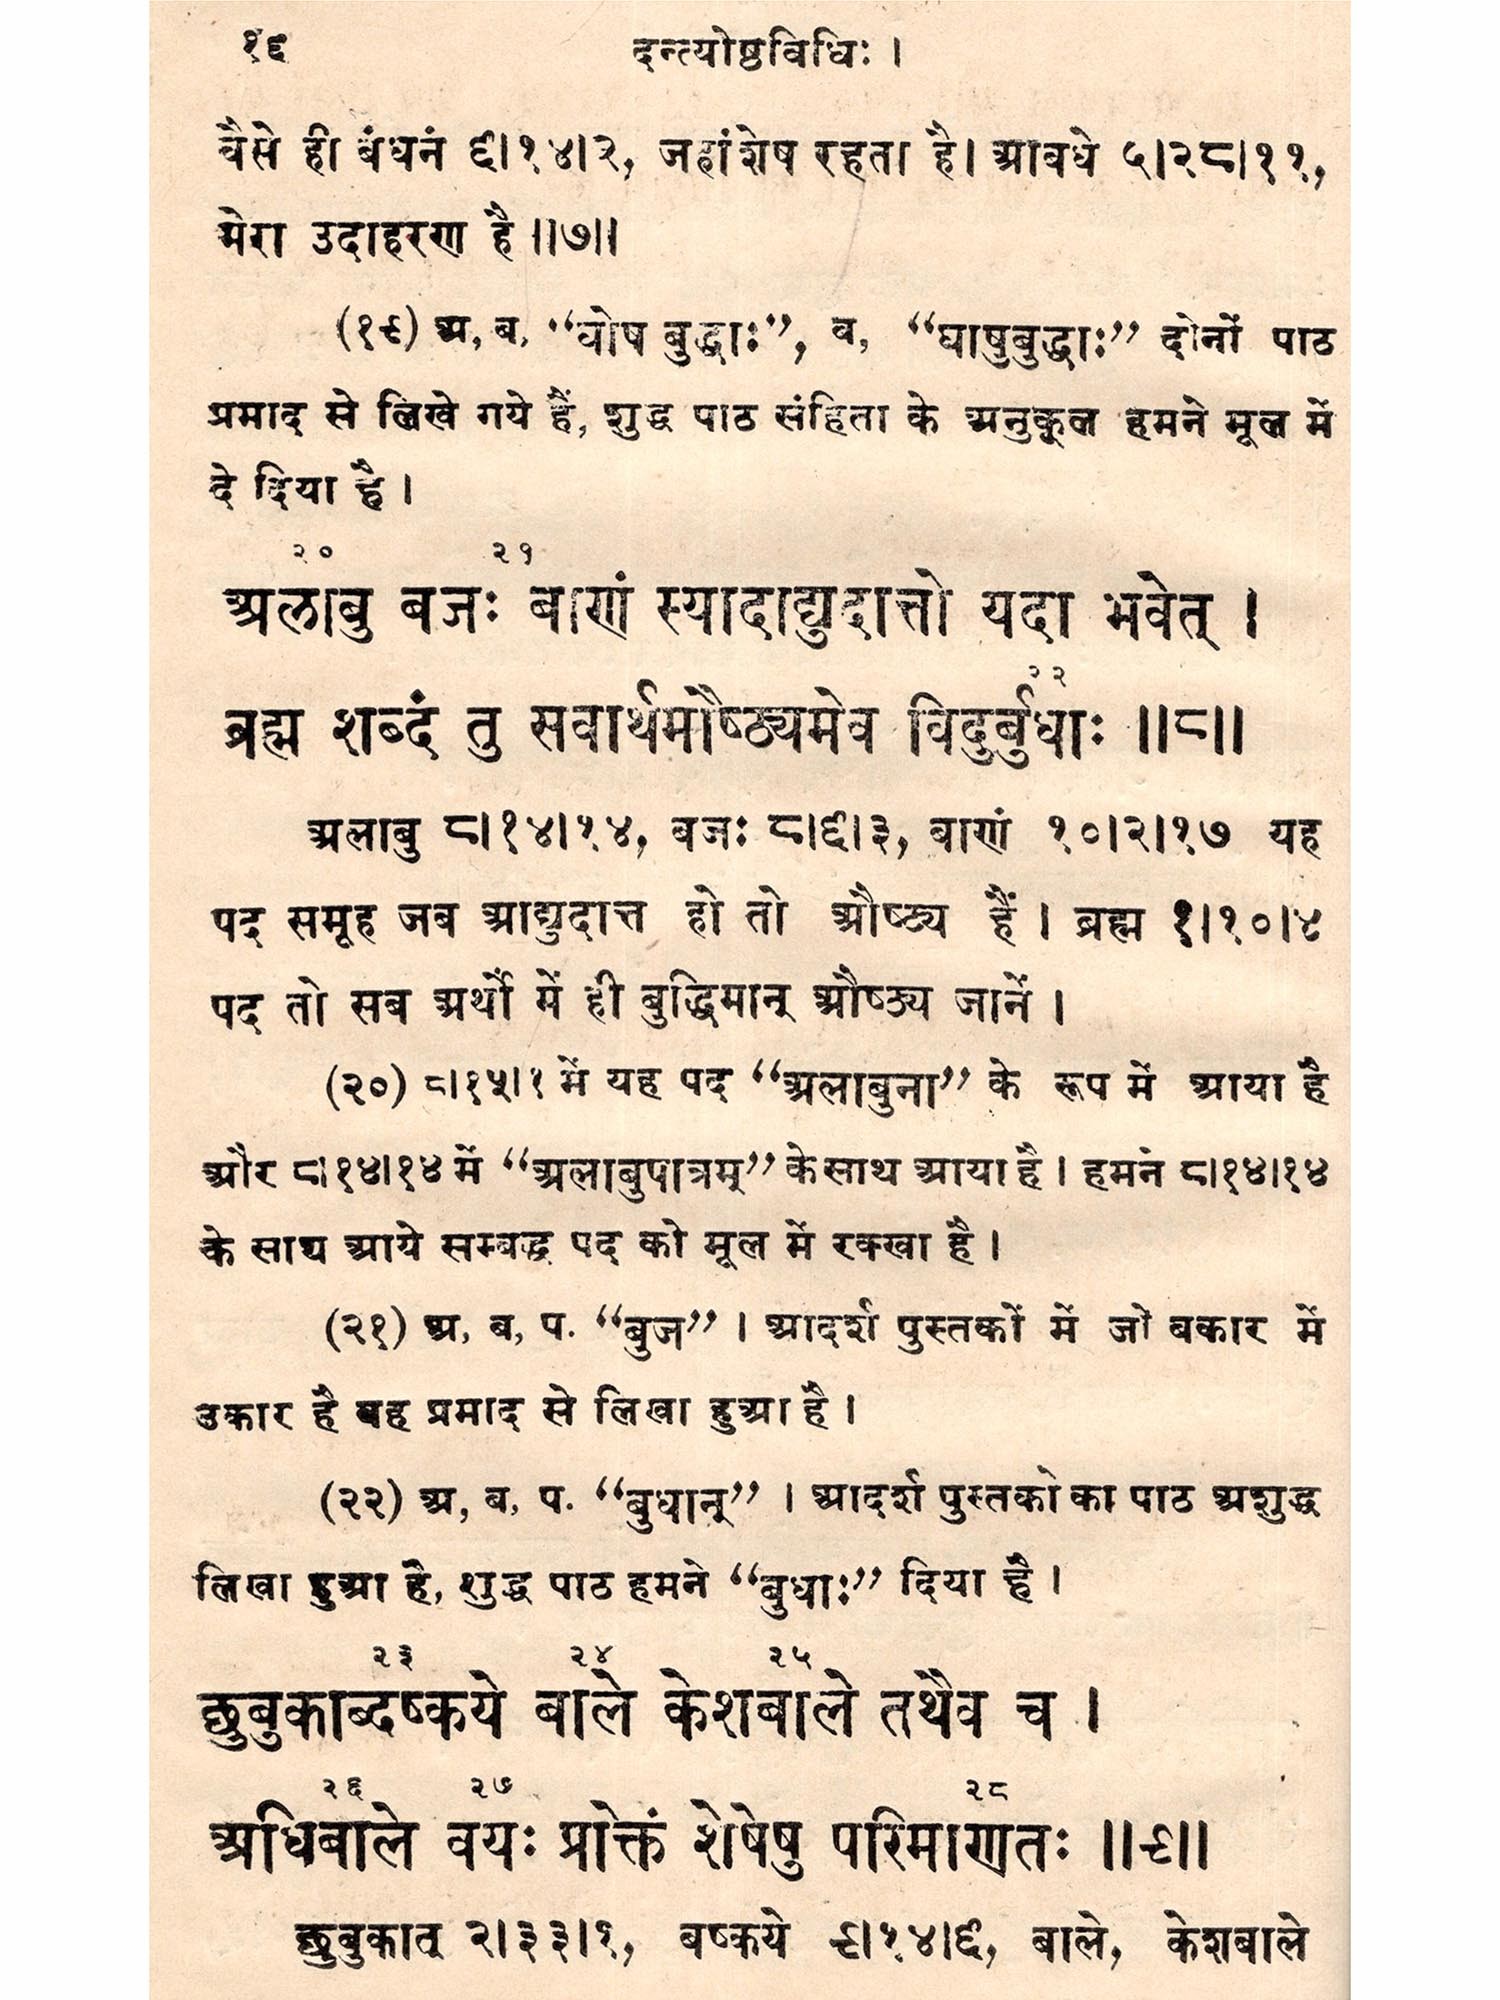 १६ दन्त्योष्ठविधिः ।
वैसे ही बंधनं ६।१४।२, जहांशेष रहता है। आबधे ५।२८।११,
मेरा उदाहरण है ॥७॥
(१९) अ, ब, “घोष बुद्धाः”, व, “घाषुबुद्धाः” दोनों पाठ
प्रमाद से लिखे गये हैं, शुद्ध पाठ संहिता के अनुकूल हमने मूल में
दे दिया है ।
२० २१
अलाबु बजः बाणं स्यादाद्युदात्तो यदा भवेत् ।
२२
ब्रह्म शब्दं तु सवार्थमौष्ठ्यमेव विदुर्बुधाः ॥८॥
अलाबु ८।१४।१४, बजः ८।६।३, बाणं १०।२।१७ यह
पद समूह जब आद्युदात्त हो तो औष्ठ्य हैं । ब्रह्म १।१०।४
पद तो सब अर्थों में ही बुद्धिमान् औष्ठ्य जानें ।
(२०) ८।१५।१ में यह पद “अलाबुना” के रूप में आया है
और ८।१४।१४ में “अलाबुपात्रम्” के साथ आया है । हमनं ८।१४।१४
के साथ आये सम्बद्ध पद को मूल में रक्खा है ।
(२१) अ, ब, प. “बुज” । आदर्श पुस्तकों में जो बकार में
उकार है वह प्रमाद से लिखा हुआ है ।
(२२) अ, ब, प. “बुधान्” । आदर्श पुस्तको का पाठ अशुद्ध
लिखा हुआ है, शुद्ध पाठ हमने “बुधाः” दिया है ।
२३ २४ २५
छुबुकाब्दष्कये बाले केशबाले तथैव च ।
२६ २७ २८
अधिबाले वयः प्रोक्तं शेषेषु परिमाणतः ॥९॥
छुबुकात् २।३३।१, बष्कये ९।१४।६, बाले, केशबाले